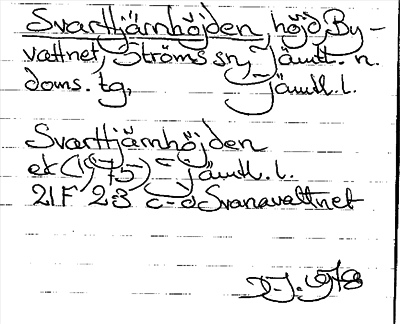 Svarttjärnhöjden, höjd, By-
vattnet, Ströms sn, Jämtl. n.
doms. tg, Jämtl. l.
Svarttjärnhöjden
ek (1975) Jämtl. l.
21F 2-3 c-d Svanavattnet
1978